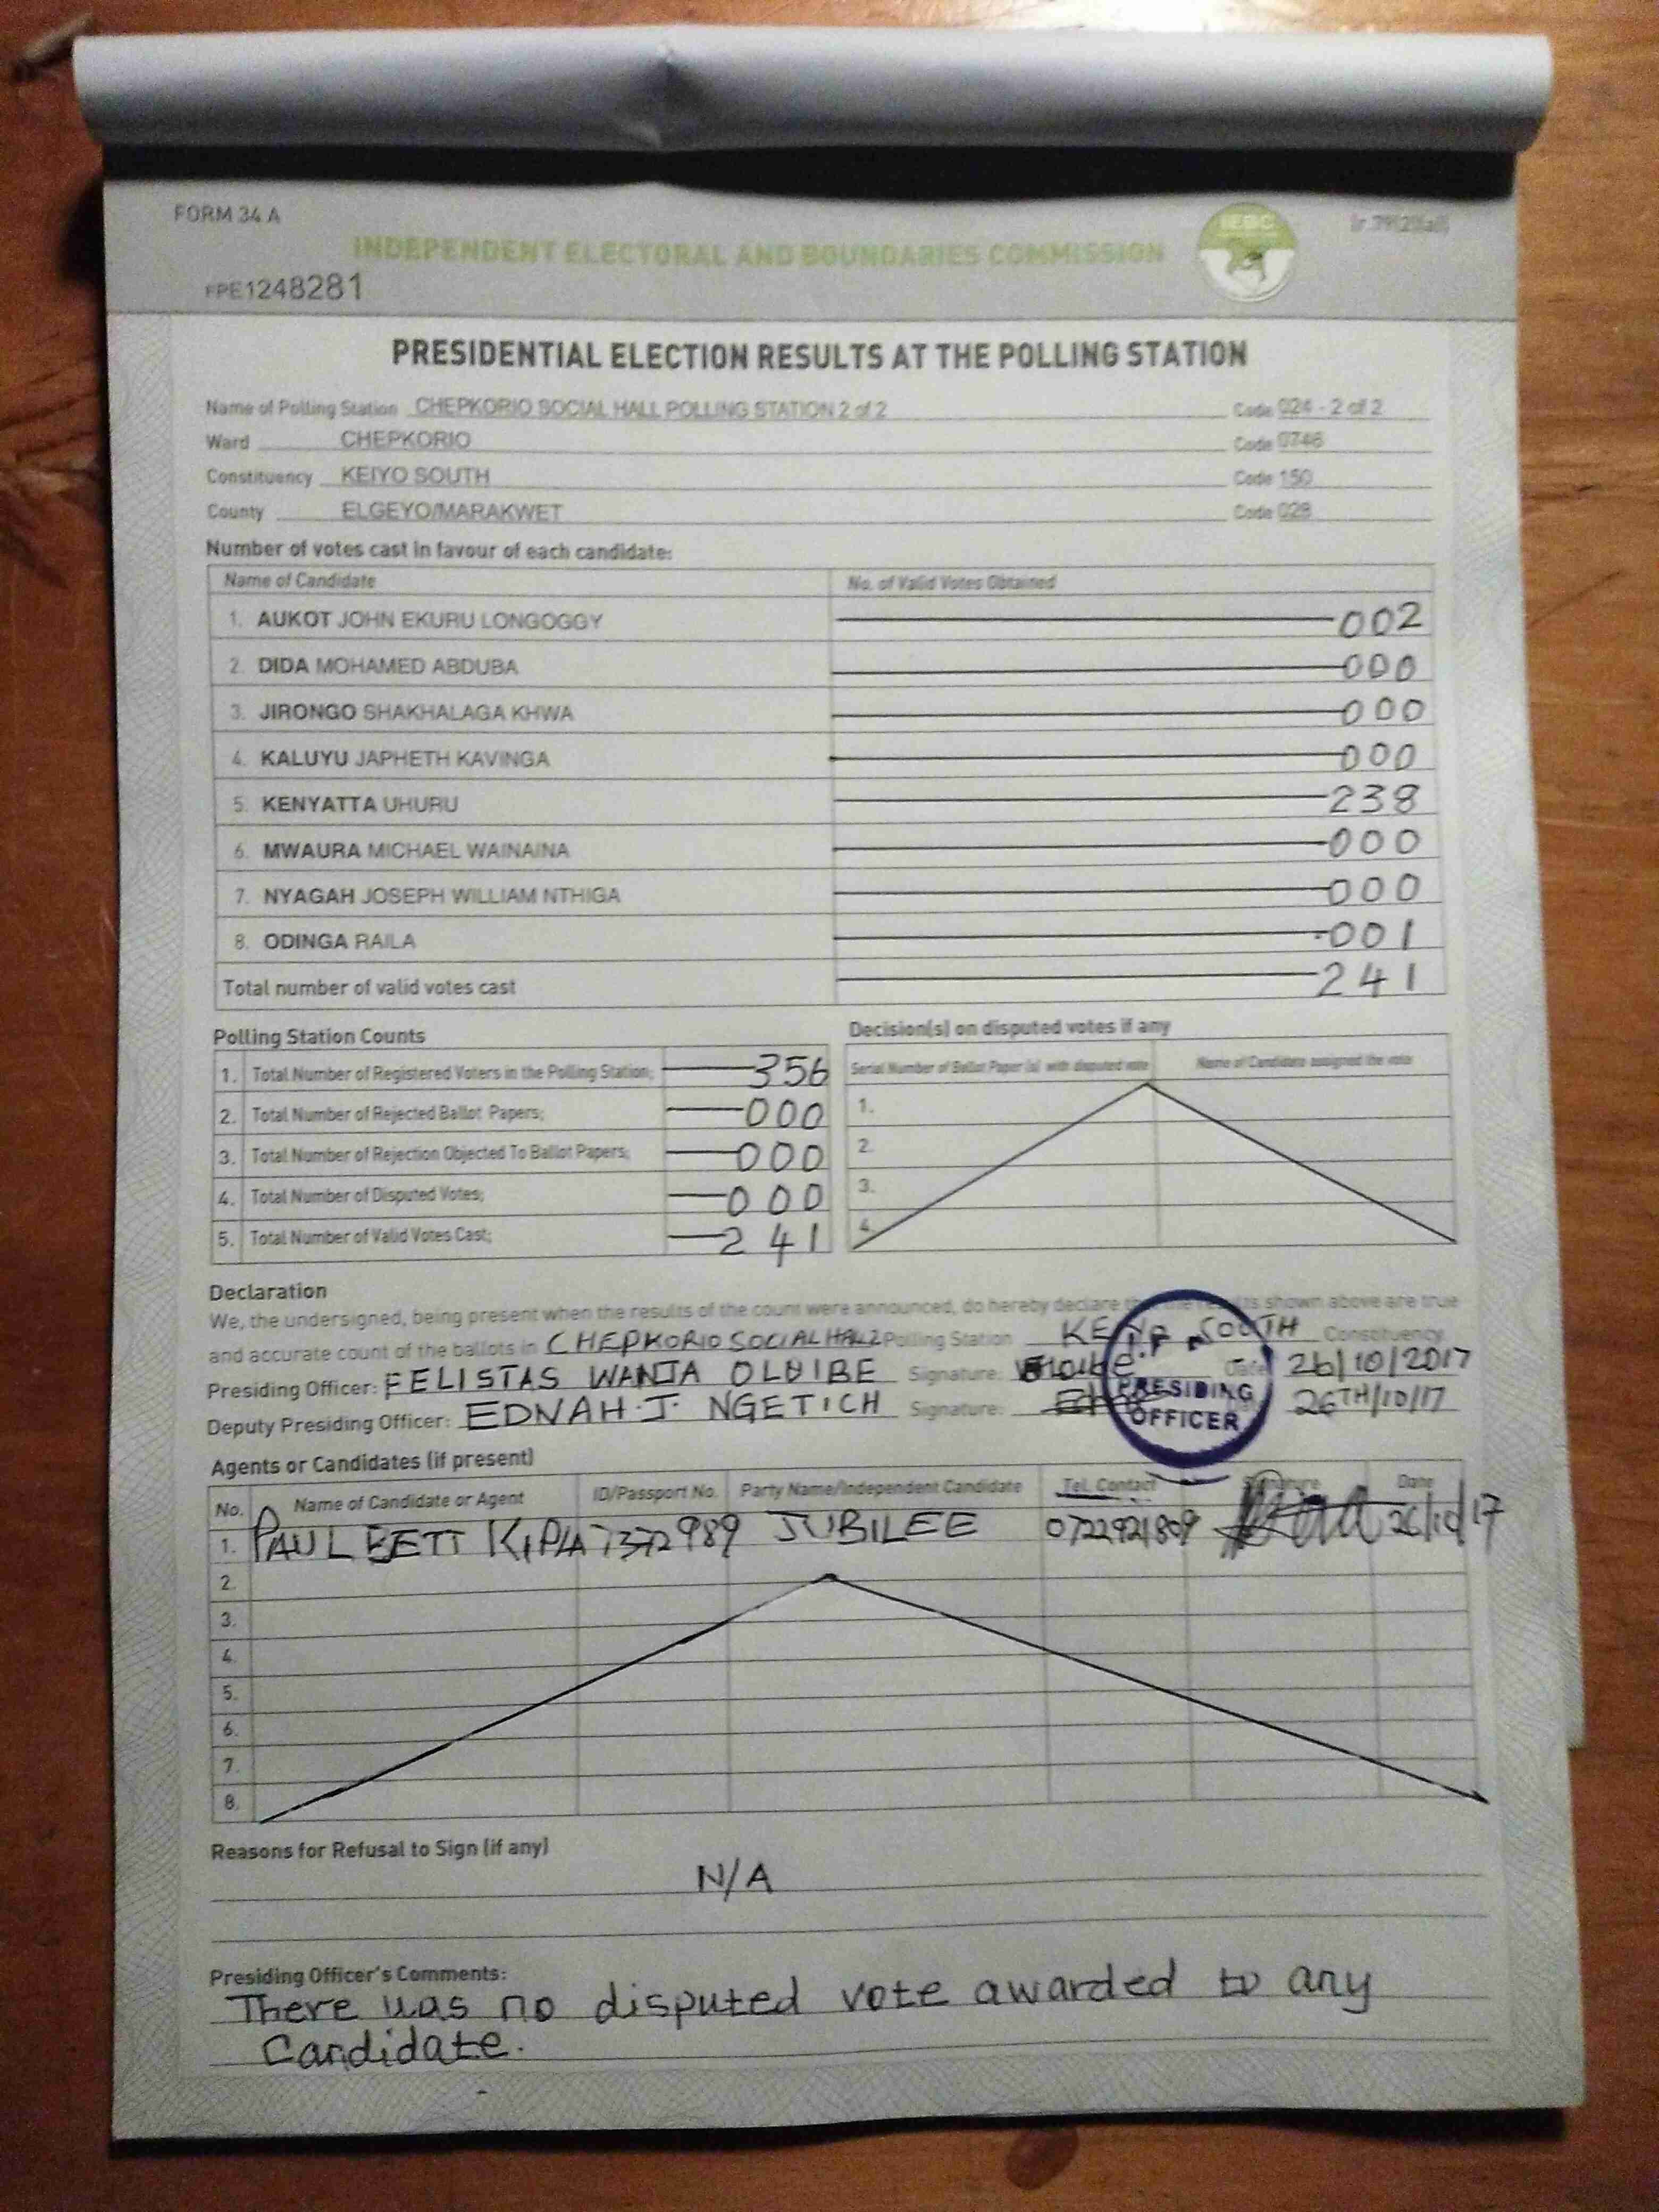 FORM 34 A
INDEPENDENT ELECTORAL AND BOUNDARIES COMMISSION
IEBC
FPE1248281
PRESIDENTIAL ELECTION RESULTS AT THE POLLING STATION
Name of Polling Station CHEPKORIO SOCIAL HALL POLLING STATION 2 of 2 Code 024 - 2 of 2
Ward CHEPKORIO Code 0746
Constituency KEIYO SOUTH Code 150
County ELGEYO/MARAKWET Code 028
Number of votes cast in favour of each candidate:
Name of Candidate No. of Valid Votes Obtained
1. AUKOT JOHN EKURU LONGOGGY 002
2. DIDA MOHAMED ABDUBA 000
3. JIRONGO SHAKHALAGA KHWA 000
4. KALUYU JAPHETH KAVINGA 000
5. KENYATTA UHURU 238
6. MWAURA MICHAEL WAINAINA 000
7. NYAGAH JOSEPH WILLIAM NTHIGA 000
8. ODINGA RAILA 001
Total number of valid votes cast 241
Polling Station Counts
1. Total Number of Registered Voters in the Polling Station; 356
2. Total Number of Rejected Ballot Papers; 000
3. Total Number of Rejection Objected To Ballot Papers; 000
4. Total Number of Disputed Votes; 000
5. Total Number of Valid Votes Cast; 241
Decision(s) on disputed votes if any
Serial Number of Ballot Paper (s) with disputed vote Name of Candidate assigned the vote
1.
2.
3.
4.
Declaration
We, the undersigned, being present when the results of the count were announced, do hereby declare shown above are true
and accurate count of the ballots in CHEPKORIO SOCIAL HALL 2 Polling Station SOUTH Constituency
Presiding Officer: FELISTAS WANJA OLUIBE Signature: Date: 26/10/2017
Deputy Presiding Officer: EDNAH.J. NGETICH Signature: 26TH/10/17
PRESIDING
OFFICER
Agents or Candidates (if present)
No. Name of Candidate or Agent ID/Passport No. Party Name/Independent Candidate Tel. Contact Signature Date
1. PAUL BETT 7372989 JUBILEE 0722921809 26/10/17
2.
3.
4.
5.
6.
7.
8.
Reasons for Refusal to Sign (if any)
N/A
Presiding Officer's Comments:
There was no disputed vote awarded to any
Candidate.